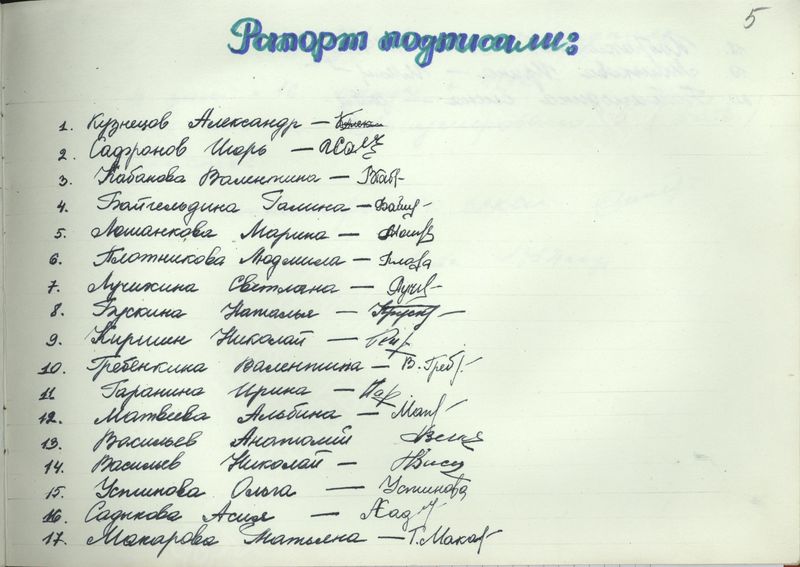 5
Рапорт подписали:
1. Кузнецов Александр —
2. Сафронов Игорь —
3. Кабанова Валентина —
4. Байгельдина Галина —
5. Лошанкова Марина —
6. Плотникова Людмила —
7. Лучихина Светлана —
8. Бускина Наталья —
9. Киршин Николай —
10. Гребёнкина Валентина — В. Греб
11 Гаранина Ирина —
12. Матвеева Альбина — Мат
13. Васильев Анатолий
14. Васильев Николай —
15. Устинова Ольга — Устинова
16 Садыкова Асия —
17. Макарова Татьяна — Т. Мака